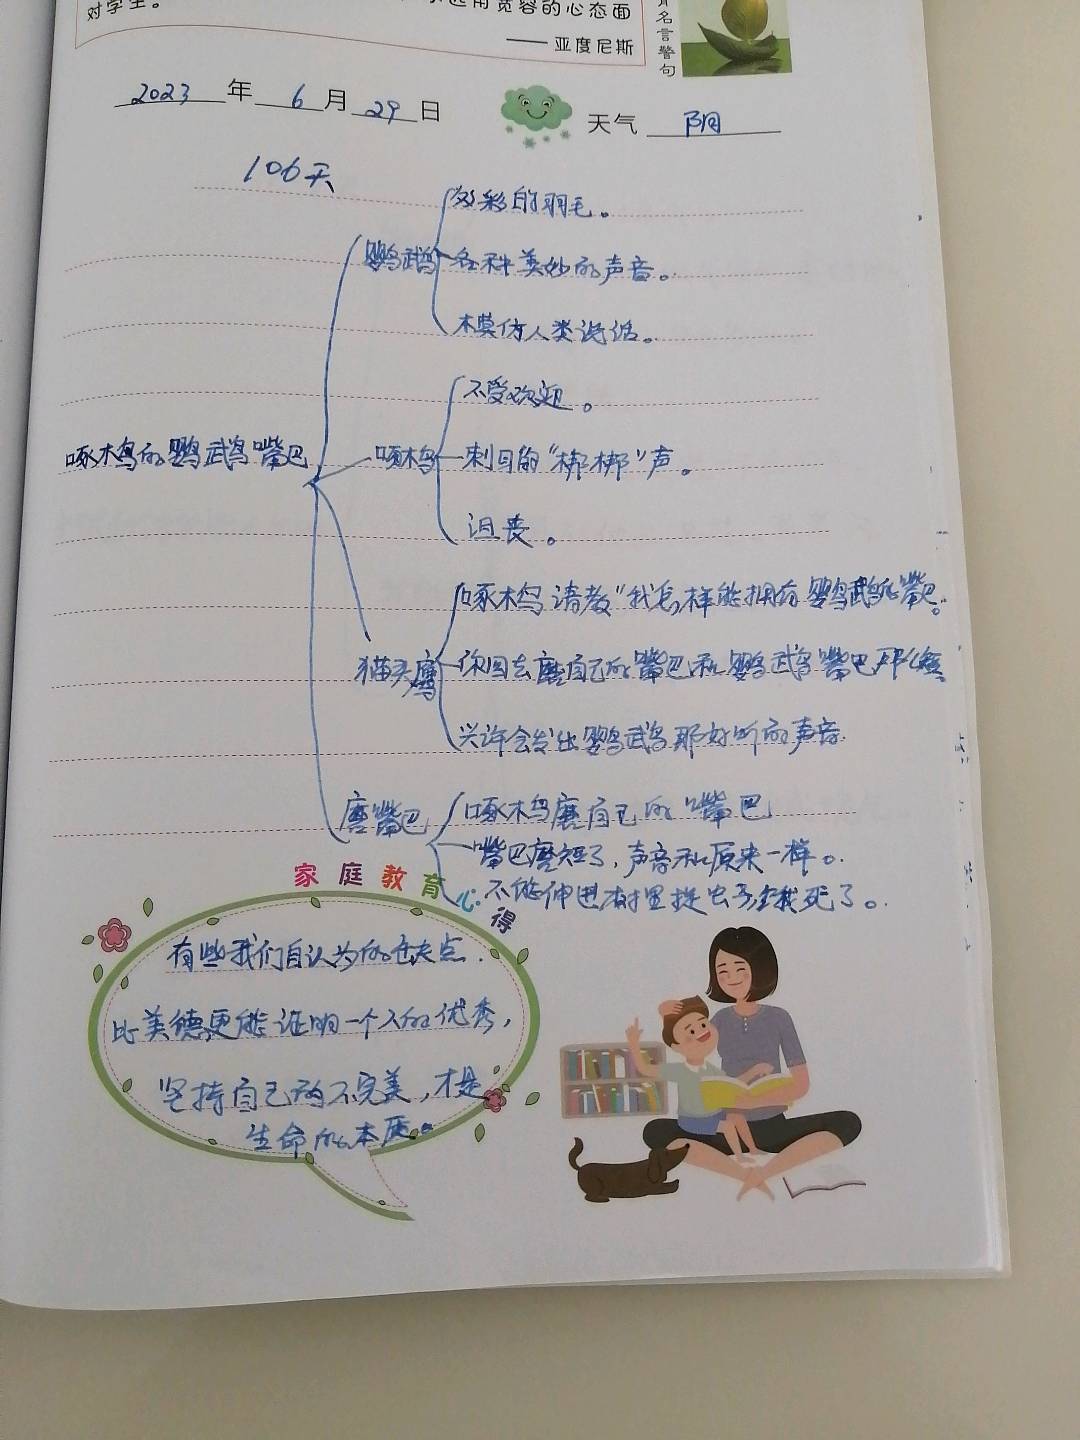 对学生。
用宽容的心态面
——亚度尼斯
名言警句
2023年6月29日
天气 阴
106天
多彩的羽毛。
鹦鹉 各种美妙的声音。
模仿人类说话。
不受欢迎。
啄木鸟的鹦鹉嘴巴 啄木鸟 刺耳的“梆梆”声。
沮丧。
啄木鸟请教“我怎样能拥有鹦鹉的嘴巴。
猫头鹰 你回去磨自己的嘴巴和鹦鹉嘴巴那么短
兴许会发出鹦鹉那好听的声音.
磨嘴巴 啄木鸟磨自己的嘴巴
嘴巴磨短了,声音和原来一样。
不能伸进树里捉虫子,饿死了。
家庭教育心得
有些我们自认为的缺点.
比美德更能证明一个人的优秀,
坚持自己的不完美,才是
生命的本质。